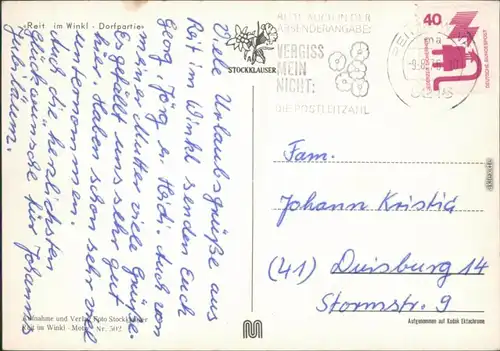 »Reit im Winkl - Dorfpartie«
Viele Urlaubsgrüße aus
Reit im Winkl senden Euch
Georg, Jörg u. Heidi. Auch von
meiner Mutter viele Grüße.
Es gefällt uns sehr gut
hier. Haben schon sehr viel
unternommen.
Auch die herzlichsten
Glückwünsche für Johanns
Jubiläum.
Aufnahme und Verlag Foto Stockklauser
Reit im Winkl - Motiv Nr. 5012
STOCKKLAUSER
BITTE AUCH IN DER
ABSENDERANGABE:
VERGISS
MEIN
NICHT:
DIE POSTLEITZAHL
40
DEUTSCHE BUNDESPOST
Fam.
Johann Kristig
(41) Duisburg 14
Stormstr. 9
Aufgenommen auf Kodak Ektachrome